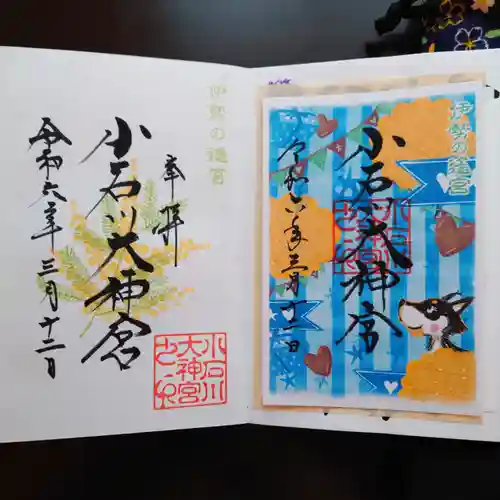 伊勢の遙宮
奉拝
小石川大神宮
令和六年三月十二日
小石川
大神宮
伊勢の遙宮
小石川大神宮
令和六年三月十二日